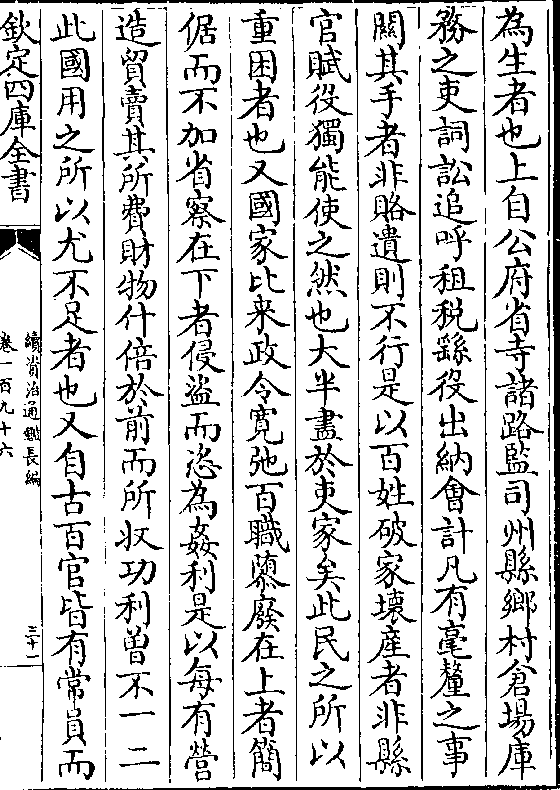 為生者也上自公府省寺諸路監司州縣鄉村倉場庫
務之吏詞訟追呼租税繇役出納會計凡有毫釐之事
關其手者非賂遺則不行是以百姓破家壊産者非縣
官賦役獨能使之然也大半盡於吏家矣此民之所以
重困者也又國家比来政令寛弛百職隳廢在上者簡
倨而不加省察在下者侵盗而恣為姦利是以每有營
造貿賣其所費財物什倍於前而所収功利曽不一二
此國用之所以尤不足者也又自古百官皆有常員而
欽定四庫全書
續資治通鑑長編
卷一百九十六
三十一